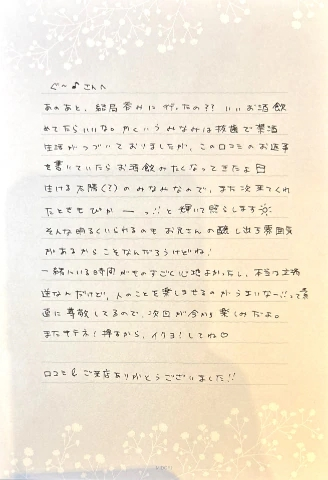 ぐ〜♪さんへ
あのあと、結局呑みに行ったの?? いいお酒飲
めてたらいいな。かくいうみなみは抜歯で禁酒
生活がつづいておりましたが、この口コミのお返事
を書いていたらお酒飲みたくなってきたよ
生ける太陽(?)のみなみなので、また次来てくれ
たときもぴかーーっ!!と輝いて照らします
そんな明るくいられるのもお兄さんの醸し出す雰囲気
があるからこそなんだろうけどね!
一緒にいる時間がものすごく心地よかったし、本当は立場
逆なんだけど、人のことを楽しませるのがうまいなー!!って素
直に尊敬してるので、次回が今から楽しみだよ。
またサテネ!押るから、イクヨ!してね♡
口コミ&ご来店ありがとうございました!!